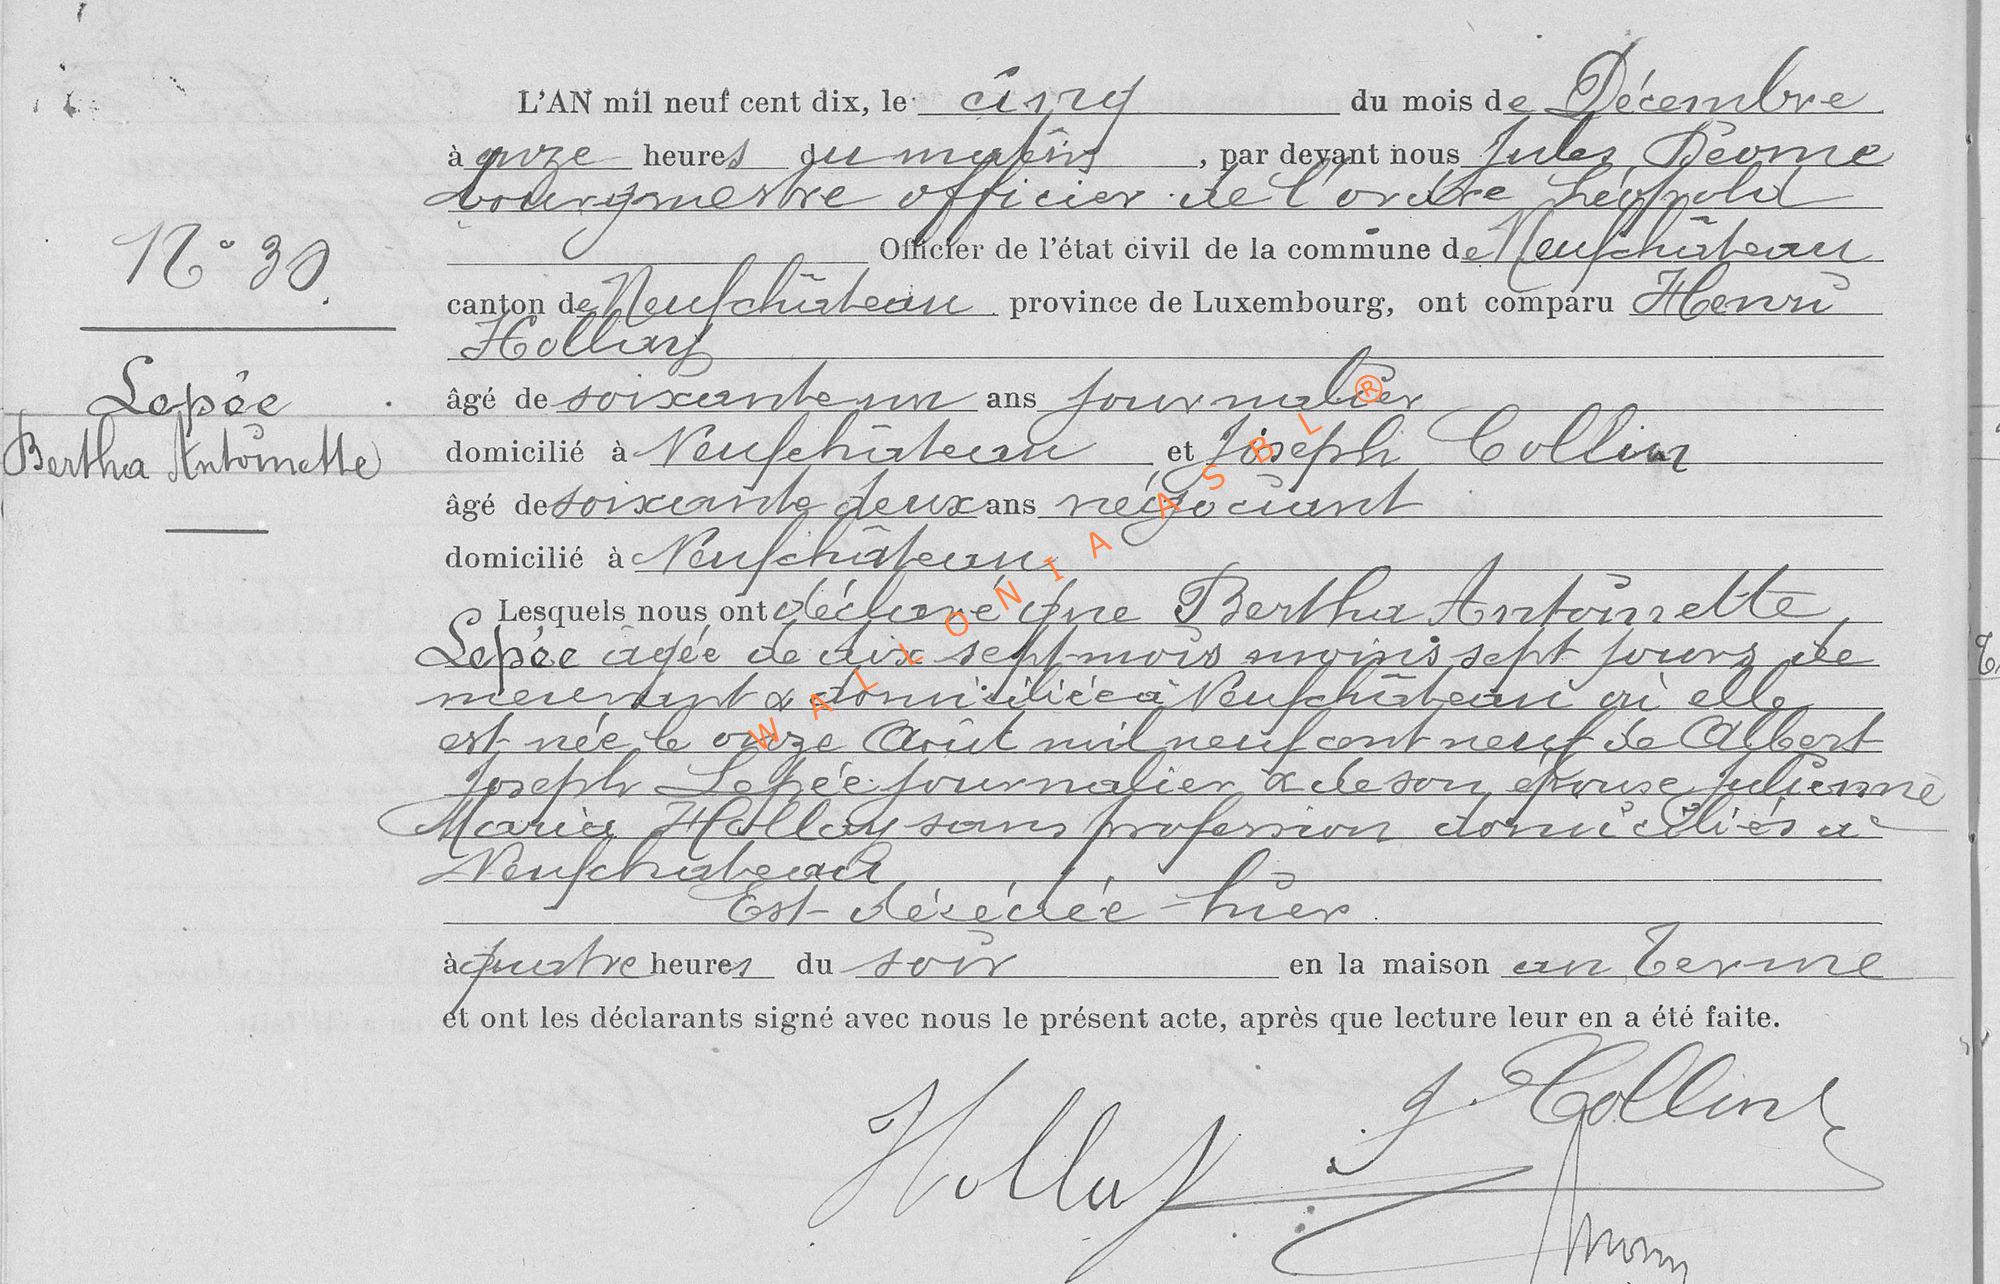 L'AN mil neuf cent dix, le cinq du mois de Décembre
à onze heures du matin, par devant nous Jules Déome
bourgmestre officier de l'ordre Léopold
N° 30
Officier de l'état civil de la commune de Neufchâteau
canton de Neufchâteau province de Luxembourg, ont comparu Henri
Hollay
Lepée
Bertha Antoinette
âgé de soixante un ans journalier
domicilié à Neufchâteau et Joseph Collin
âgé de soixante deux ans négociant
domicilié à Neufchâteau
Lesquels nous ont déclaré que Bertha Antoinette
Lepée âgée de dix sept mois moins sept jours de
meurant & domiciliée à Neufchâteau où elle
est née le onze Août mil neuf cent neuf de Albert
Joseph Lepée journalier & de son épouse Julienne
Maria Hollay sans profession domiciliés à
Neufchateau
Est décédée hier
à quatre heures du soir en la maison au Terme
et ont les déclarants signé avec nous le présent acte, après que lecture leur en a été faite.
J. Collin
Hollay
WALLONIA ASBL ®